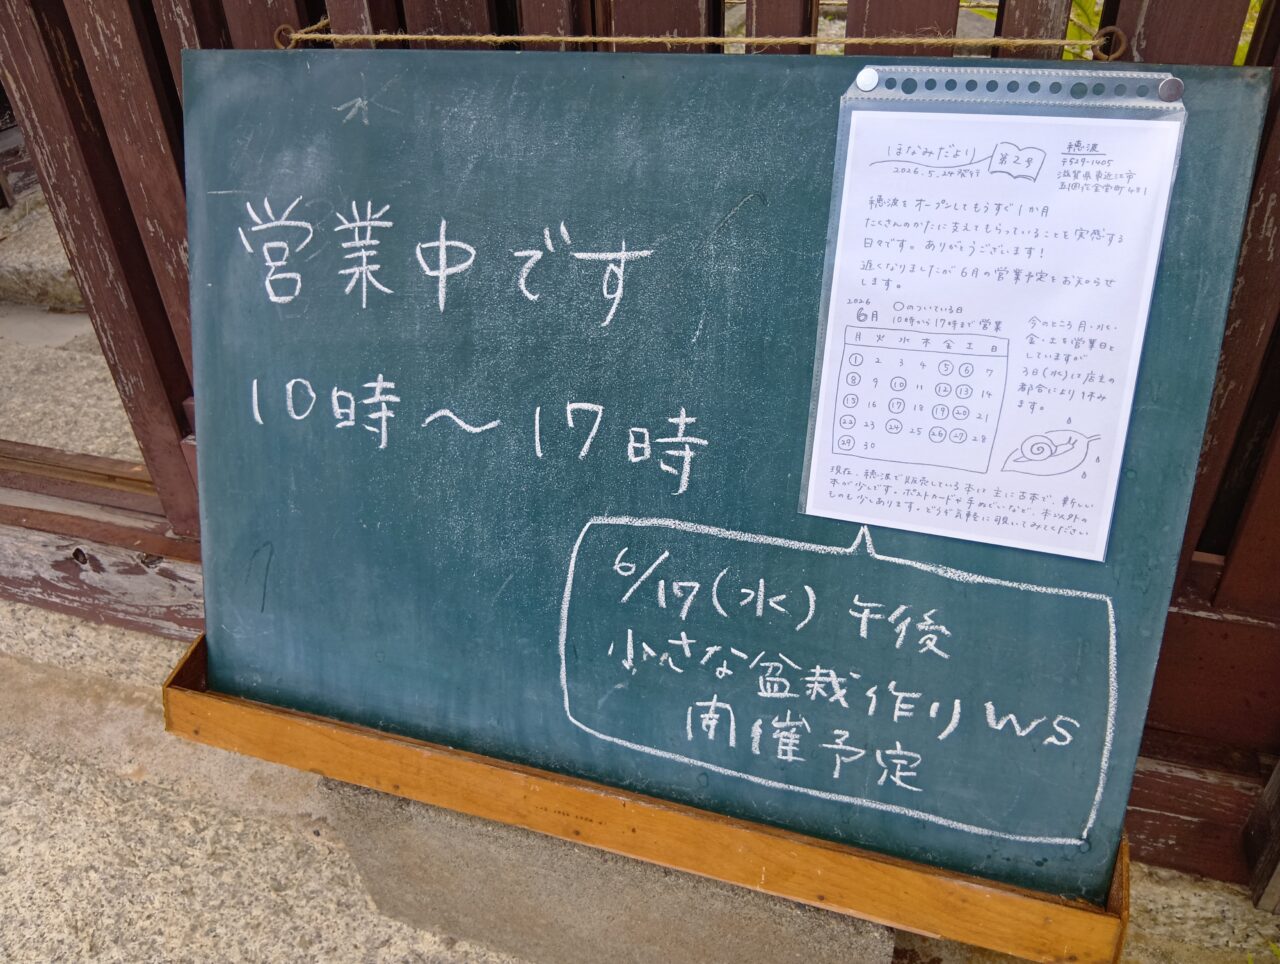 営業中です
10時～17時
ほなみだより
第2号
2026.5.24発行
穂波
〒529-1405
滋賀県東近江市
五個荘金堂町481
穂波をオープンしてもうすぐ1か月
たくさんのかたに支えてもらっていることを実感する
日々です。ありがとうございます！
遅くなりましたが6月の営業予定をお知らせ
します。
2026
6月
○のついている日
10時から17時まで営業
月 火 水 木 金 土 日
1 2 3 4 5 6 7
8 9 10 11 12 13 14
15 16 17 18 19 20 21
22 23 24 25 26 27 28
29 30
今のところ月・水・
金・土を営業日と
していますが
3日(水)は店主の
都合により休み
ます。
現在、穂波で販売している本は主に古本で、新しい
本が少しです。ポストカードや手ぬぐいなど、本以外の
ものも少しあります。どうぞ気軽に覗いてみてください
6/17(水) 午後
小さな盆栽作りWS
開催予定